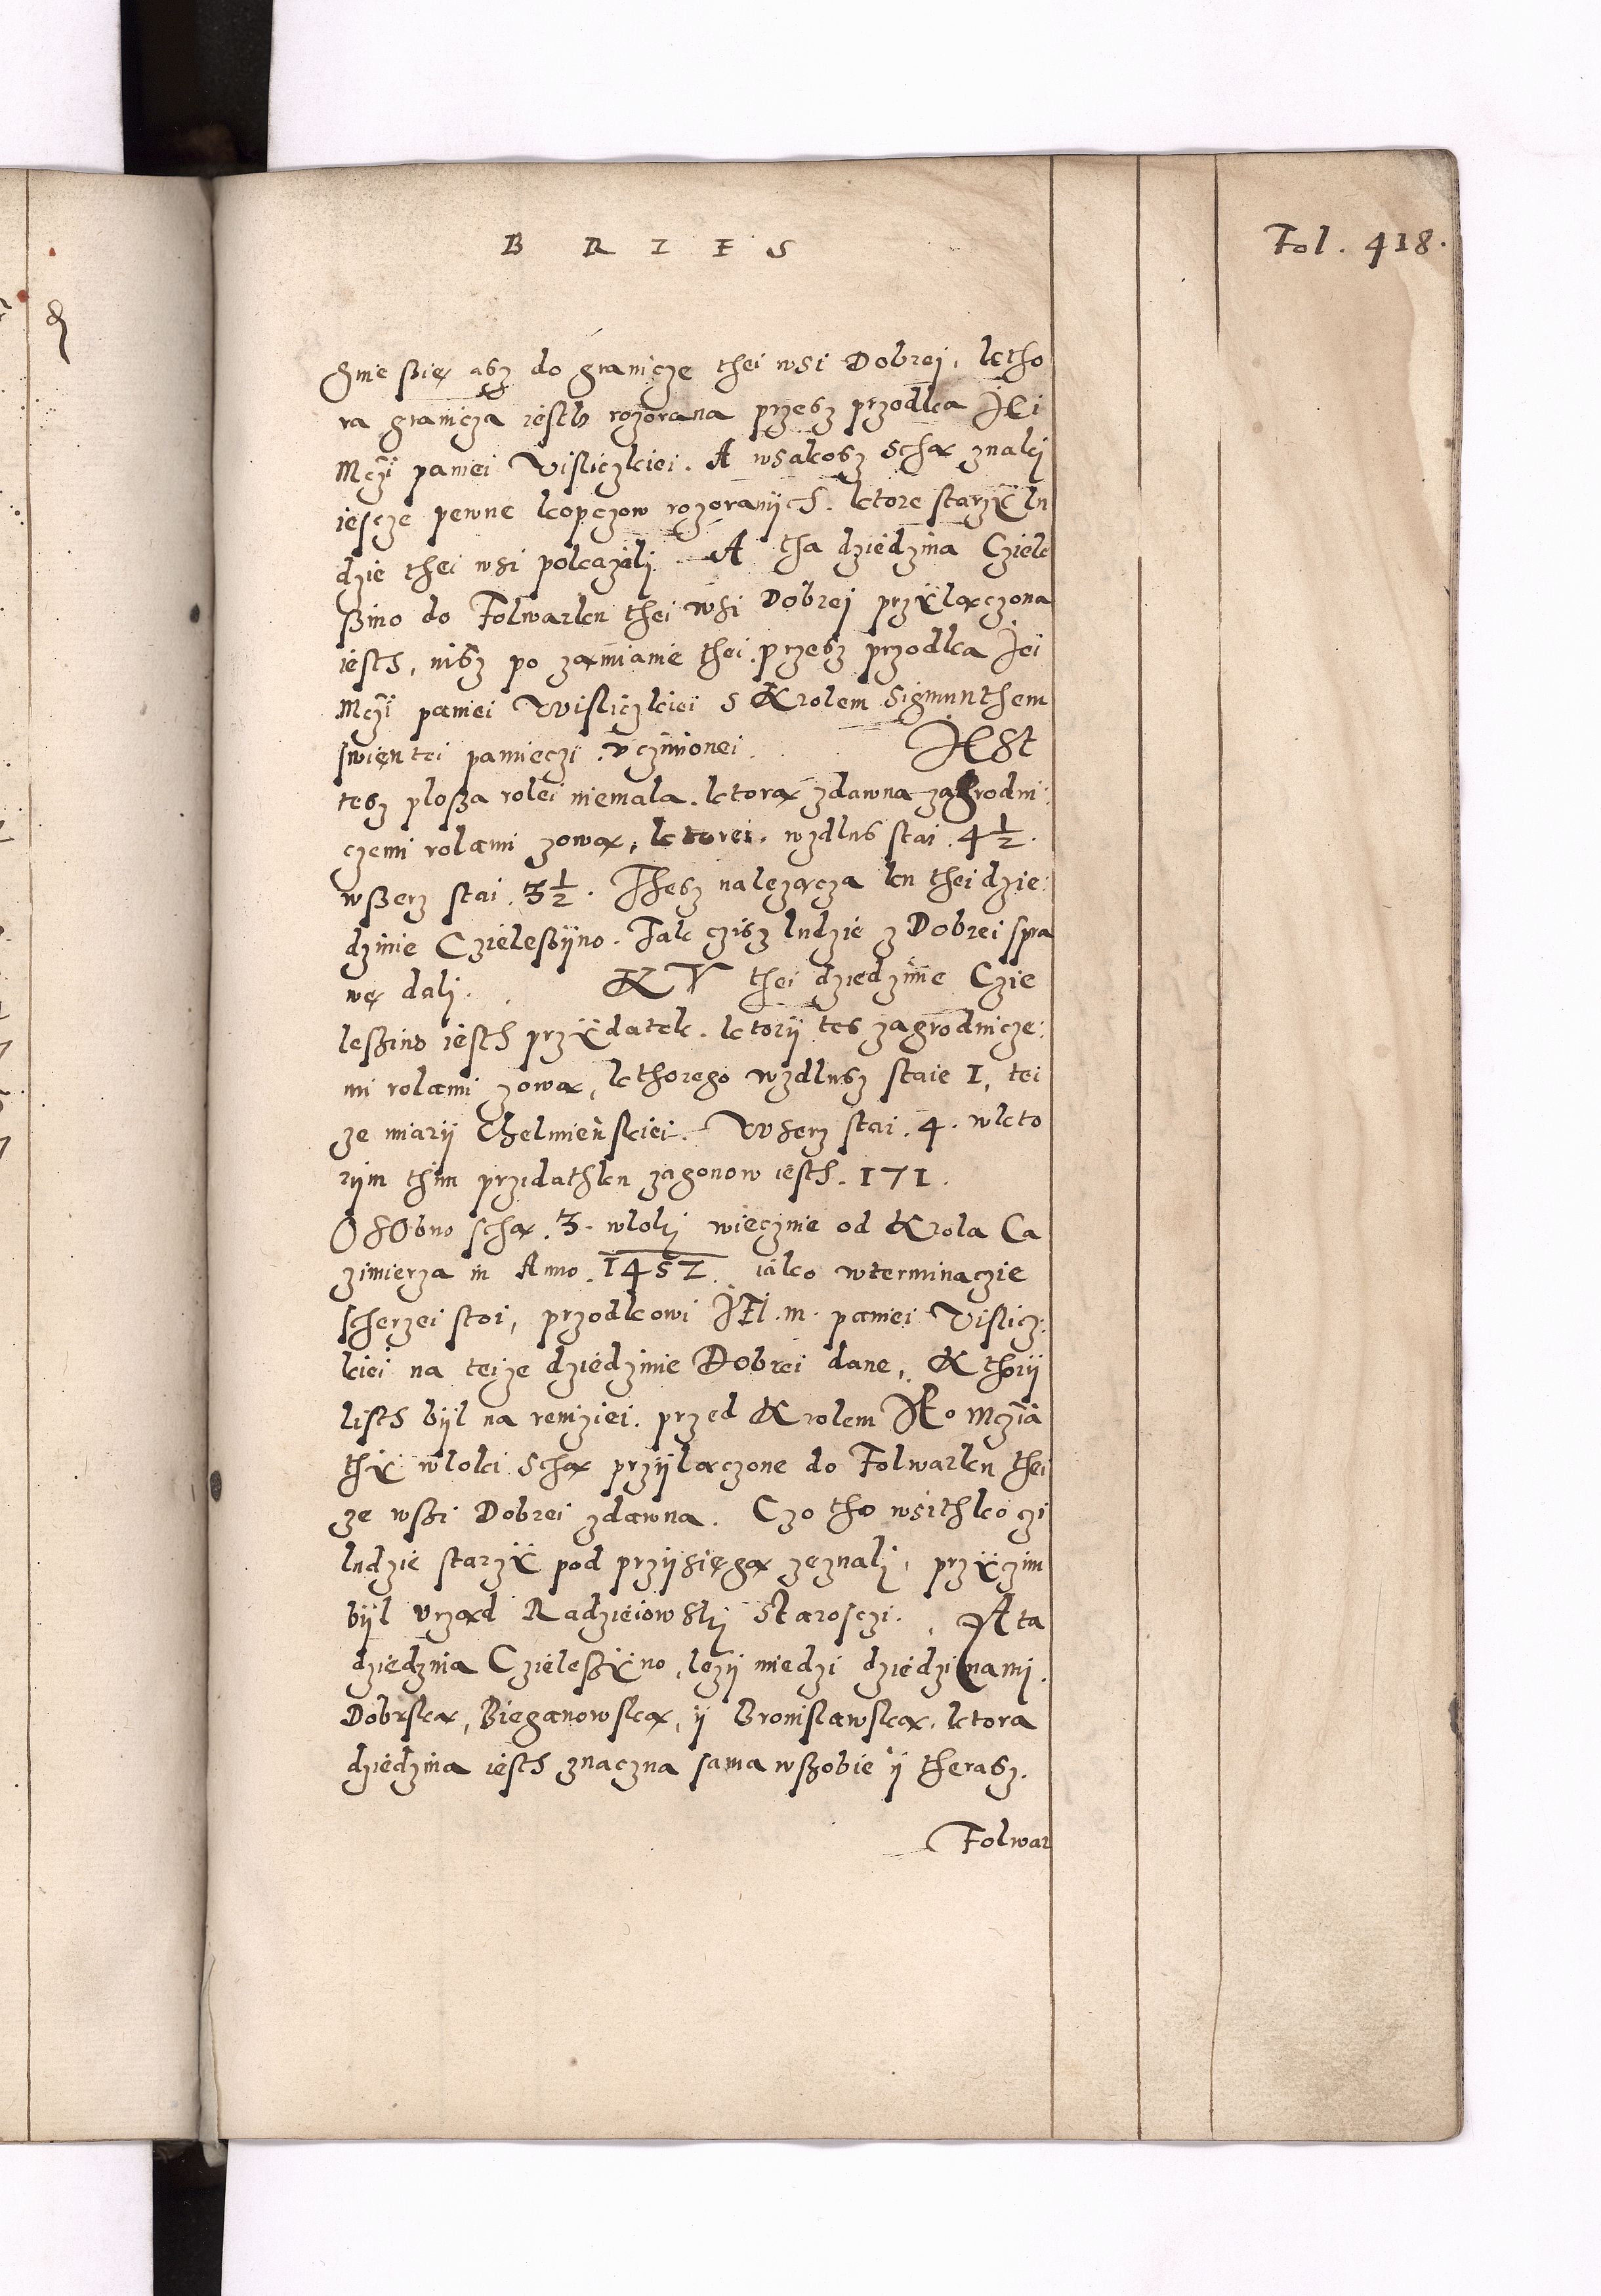 B R I E S
Fol. 418.
gnie ßię asz do granicze thei wsi Dobrej, ktho
ra granicza iesth rozorana przesz przodka JEi
Mczÿ paniei Visliczkiei. A wsakosz schą znakj
iescze pewne kopczow rozoranÿch. ktore starzÿ lu
dzie thei wsi pokazali. A tha dziedzina Cziele
ßino do Folwarku thei wsi Dobrej przÿlączona
iesth, nisz po zamianie thei przesz przodka Jei
Mczÿ paniei Wisliczkiei s Krolem Sigmunthem
swiętei pamieczi vczinionei. JESt
tesz plosza rolei niemala. ktorą zdawna zagrodni:
czemi rolami zową, ktorei. wzdlus stai. 4 1/2.
wßerz stai. 3 1/2. Thesz nalezącza ku thei dzie:
dzinie Czieleßÿno. Tak czisz ludzie z Dobrei spra
wę dalj. KV thei dziedzinie Czie
leßino iesth przÿdatek. ktorÿ tes zagrodnicze:
mi rolami zową, kthorego wzdlusz staie 1, tei
ze miarÿ Chelmienskiei. Wserz stai. 4. wkto
rÿm thim przidathku zagonow iesth. 171.
OsObno schą. 3. wlokj wiecznie od Krola Ca
zimierza in Anno. 1457. iako wterminaczie
scherzei stoi, przodkowi JEI. m. paniei Vislicz:
kiei na teize dziedzinie Dobrei dane, Kthorÿ
listh bÿl na rewiziei. przed Krolem JEo Mczią
thÿ wloki schą przÿlączone do Folwarku thei
ze wßi Dobrei zdawna. Czo tho wsithko czi
ludzie starzÿ pod przÿsięgą zeznalj, przÿczim
bÿl vrząd Radzieiowskj Starosczi. Ata
dziedzina Czieleßÿno, lezÿ miedzi dziedzinami.
Dobrską, Bieganowską, ÿ Bronislawską. ktora
dziedzina iesth znaczna sama wßobie ÿ therasz.
Folwar